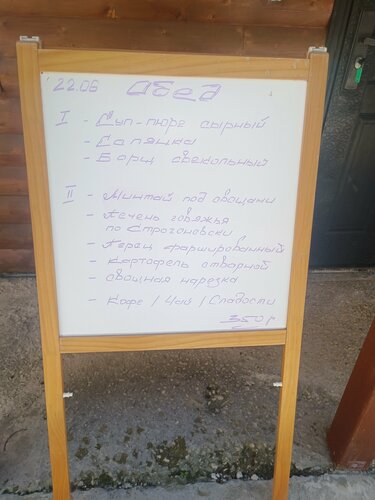 22.06 Обед
I - Суп-пюре сырный
- Солянка
- Борщ свекольный
II - Минтай под овощами
- Печень говяжья
по Строгоновски
- Перец фаршированный
- Картофель отварной
- овощная нарезка
- Кофе / Чай / Сладости
350 г